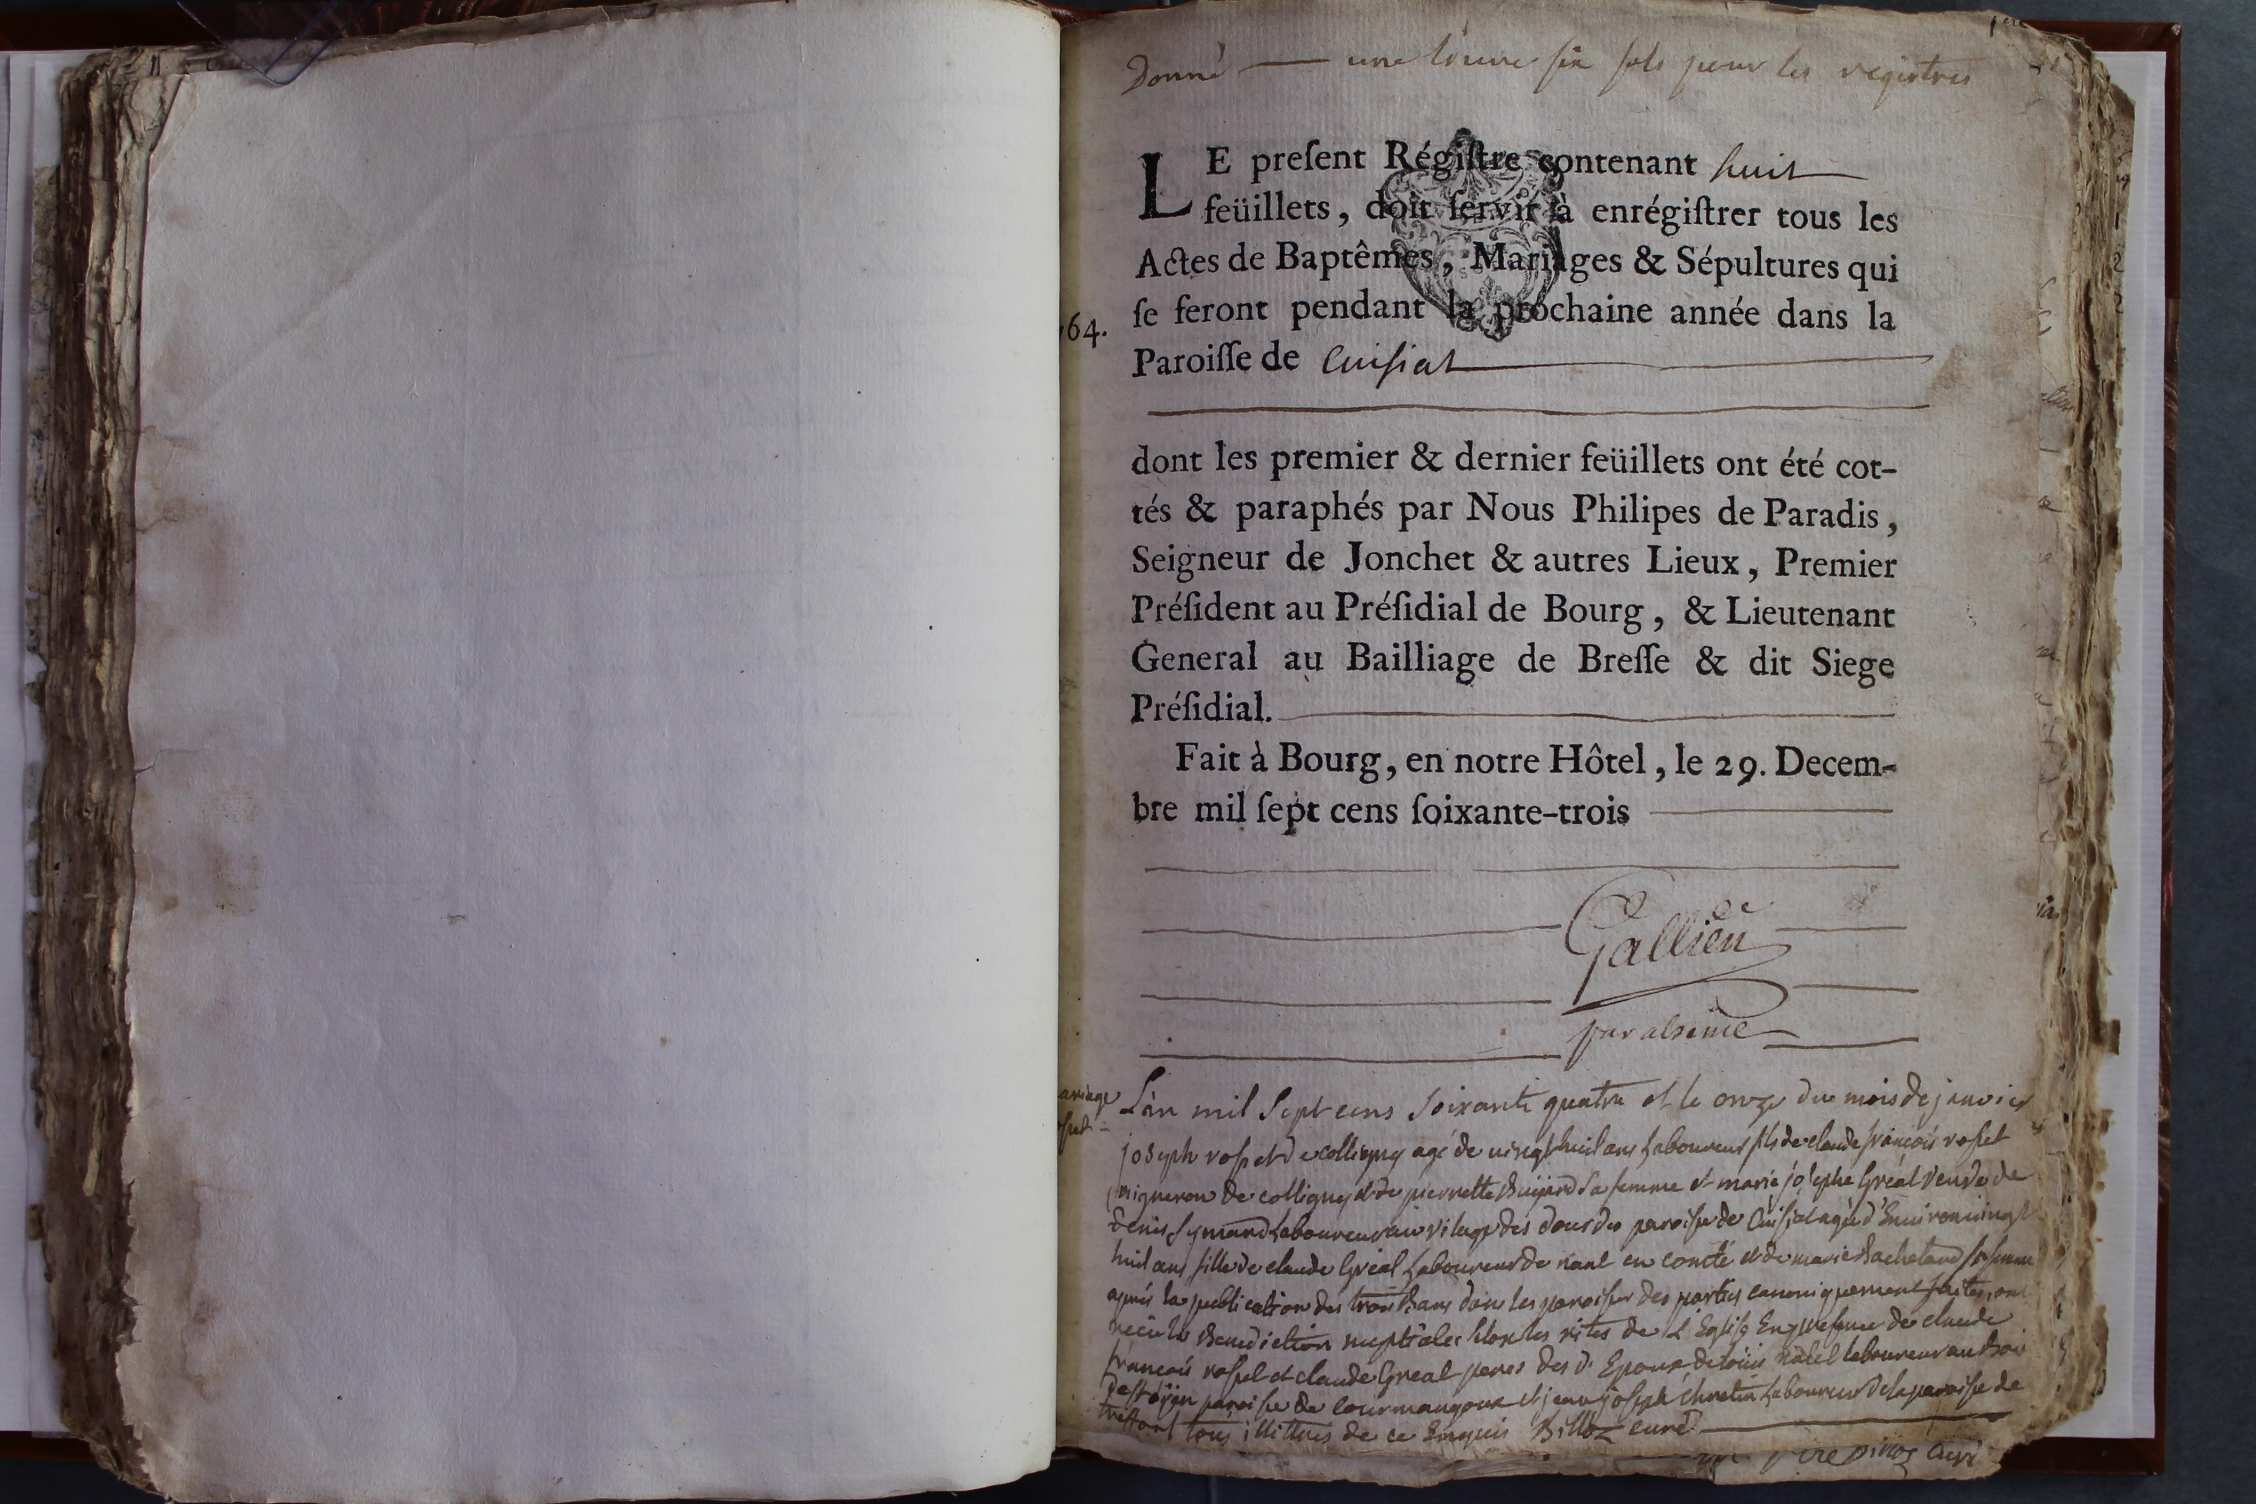 Donné — une livre six sols pour les registres
LE preſent Régiſtre contenant huit
feüillets, doit ſervir à enrégiſtrer tous les
Actes de Baptêmes, Mariages & Sépultures qui
ſe feront pendant la prochaine année dans la
64.
Paroiſſe de Cuisiat
dont les premier & dernier feüillets ont été cot-
tés & paraphés par Nous Philipes de Paradis,
Seigneur de Jonchet & autres Lieux, Premier
Préſident au Préſidial de Bourg, & Lieutenant
General au Bailliage de Breſſe & dit Siege
Préſidial.
Fait à Bourg, en notre Hôtel, le 29. Decem-
bre mil ſept cens ſoixante-trois
Gallien
par absence
ariage
L'an mil Sept cens Soixante quatre et le onze du mois de janvier
joseph rosset de colligny agé de vingt huit ans Laboureur fils de claude françois rosset
vigneron de colligny et de pierrette Buijard sa femme et marie josephe Gréal veuve de
denis Symand Laboureur au vilage des dous du paroisse de Cuisiat agée d'Environ vingt
huit ans fille de claude Gréal Laboureur de nant en comté et de marie Bachetard sa femme
aprés la publication des trois Bans dans les paroisses des parties canoniquement faites, ont
reçu la Benediction nuptiale selon les rites de L'Eglise En presence de claude
françois rosset et claude Gréal peres des d. Epoux de Loüis nallet laboureur au Bois
paroisse de courmangoux et jean joseph chretin Laboureur de la paroisse de
tous illitturés de ce Enquis Billoz curé